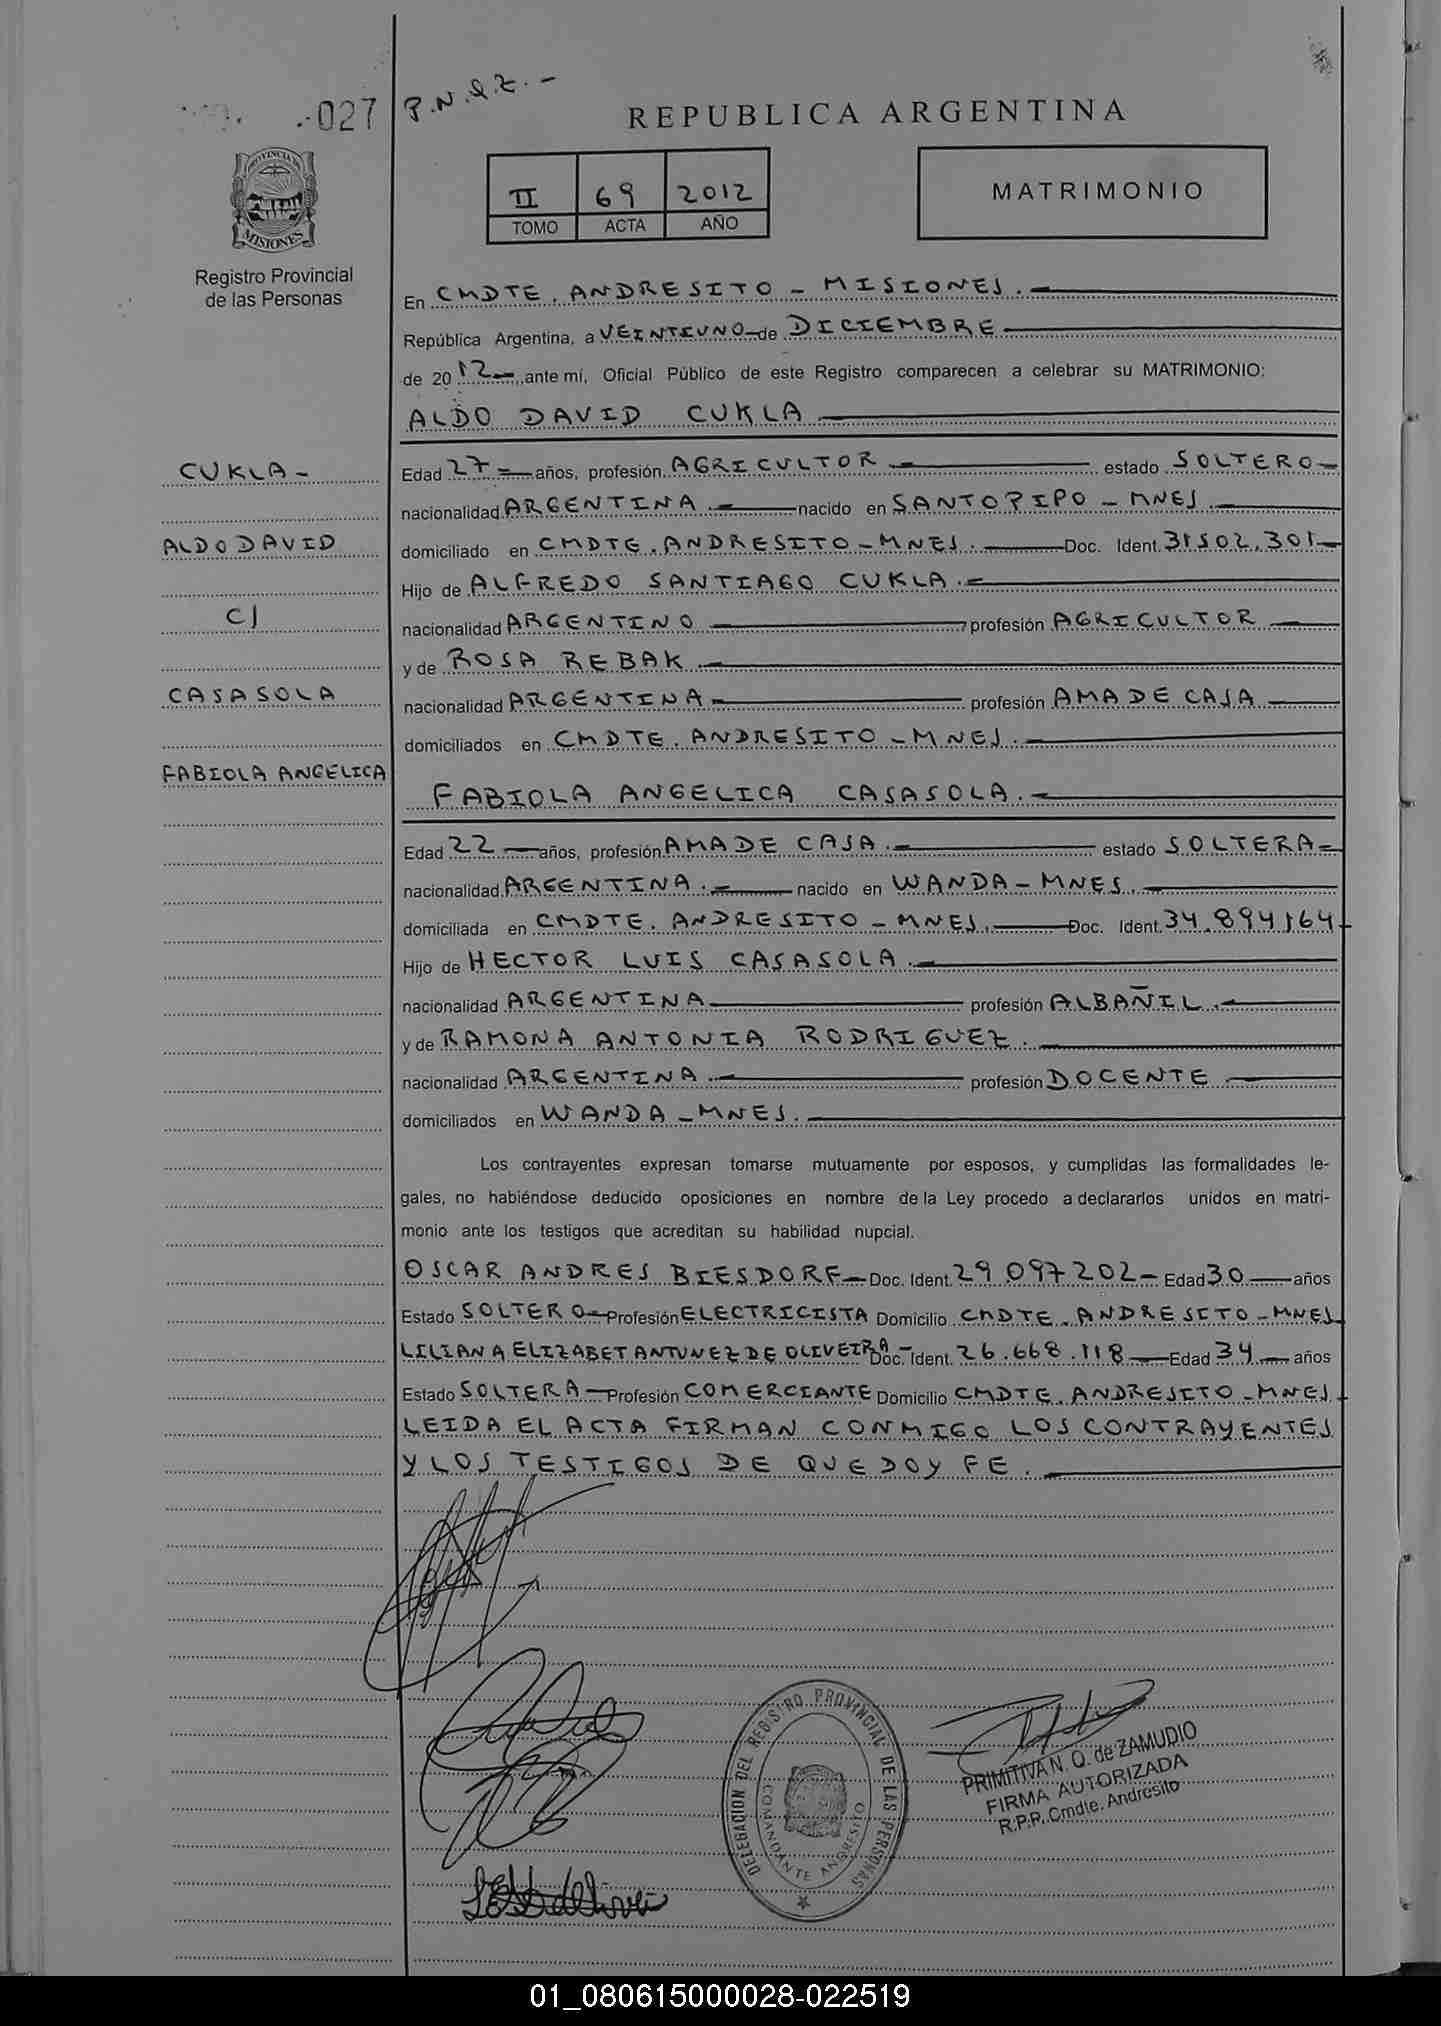 027 P.N.Q.Z.-
REPUBLICA ARGENTINA
PROVINCIA DE
MISIONES
II 69 2012
TOMO ACTA AÑO
MATRIMONIO
Registro Provincial
de las Personas
En CMDTE. ANDRESITO - MISIONES.
República Argentina, a VEINTIUNO de DICIEMBRE
de 2012 ante mí, Oficial Público de este Registro comparecen a celebrar su MATRIMONIO:
ALDO DAVID CUKLA
CUKLA -
ALDO DAVID
C/
CASASOLA
FABIOLA ANGELICA
Edad 27 años, profesión AGRICULTOR estado SOLTERO
nacionalidad ARGENTINA. nacido en SANTO PIPO - MNES.
domiciliado en CMDTE. ANDRESITO - MNES. Doc. Ident. 31502.301
Hijo de ALFREDO SANTIAGO CUKLA.
nacionalidad ARGENTINO profesión AGRICULTOR
y de ROSA REBAK
nacionalidad ARGENTINA profesión AMA DE CASA
domiciliados en CMDTE. ANDRESITO - MNES.
FABIOLA ANGELICA CASASOLA.
Edad 22 años, profesión AMA DE CASA. estado SOLTERA
nacionalidad ARGENTINA. nacido en WANDA - MNES.
domiciliada en CMDTE. ANDRESITO - MNES. Doc. Ident. 34.894164
Hijo de HECTOR LUIS CASASOLA.
nacionalidad ARGENTINA profesión ALBAÑIL.
y de RAMONA ANTONIA RODRIGUEZ.
nacionalidad ARGENTINA. profesión DOCENTE
domiciliados en WANDA - MNES.
Los contrayentes expresan tomarse mutuamente por esposos, y cumplidas las formalidades le-
gales, no habiéndose deducido oposiciones en nombre de la Ley procedo a declararlos unidos en matri-
monio ante los testigos que acreditan su habilidad nupcial.
OSCAR ANDRES BIESDORF Doc. Ident. 29 097202 Edad 30 años
Estado SOLTERO Profesión ELECTRICISTA Domicilio CMDTE. ANDRESITO - MNES
LILIANA ELIZABET ANTUNEZ DE OLIVEIRA Doc. Ident. 26.668.118 Edad 34 años
Estado SOLTERA Profesión COMERCIANTE Domicilio CMDTE. ANDRESITO - MNES.
LEIDA EL ACTA FIRMAN CONMIGO LOS CONTRAYENTES
Y LOS TESTIGOS DE QUE DOY FE.
DELEGACION DEL REGISTRO PROVINCIAL DE LAS PERSONAS
COMANDANTE ANDRESITO
PRIMITIVA N. Q. de ZAMUDIO
FIRMA AUTORIZADA
R.P.P. Cmdte. Andresito
01_080615000028-022519